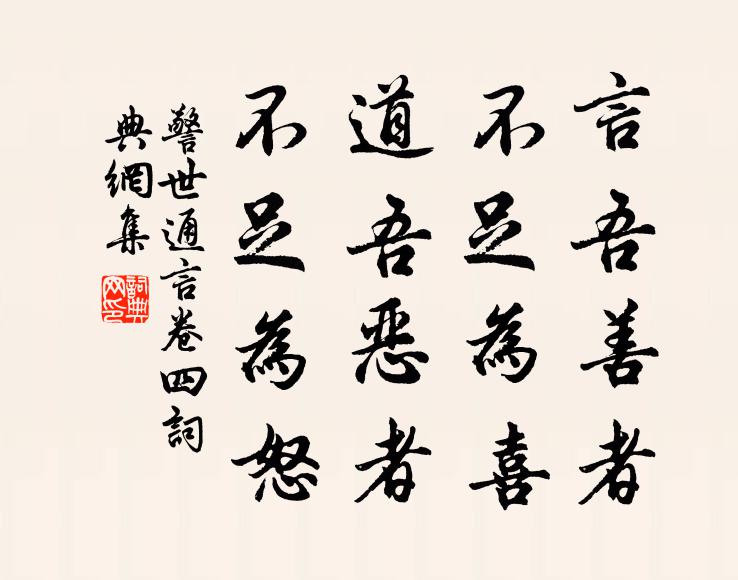 言吾善者
不足為喜
道吾惡者
不足為怒
警世通言卷四詞
典網集
詞典
网印